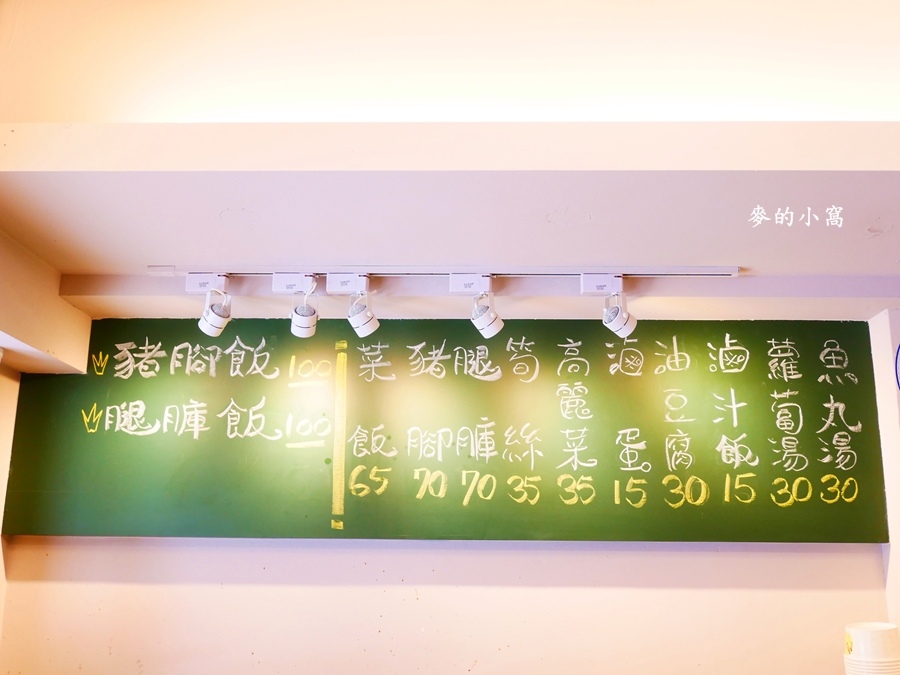 麥的小窩
豬腳飯 100
腿庫飯 100
菜飯 65
豬腳 70
腿庫 70
筍絲 35
高麗菜 35
滷蛋 15
油豆腐 30
滷汁飯 15
蘿蔔湯 30
魚丸湯 30